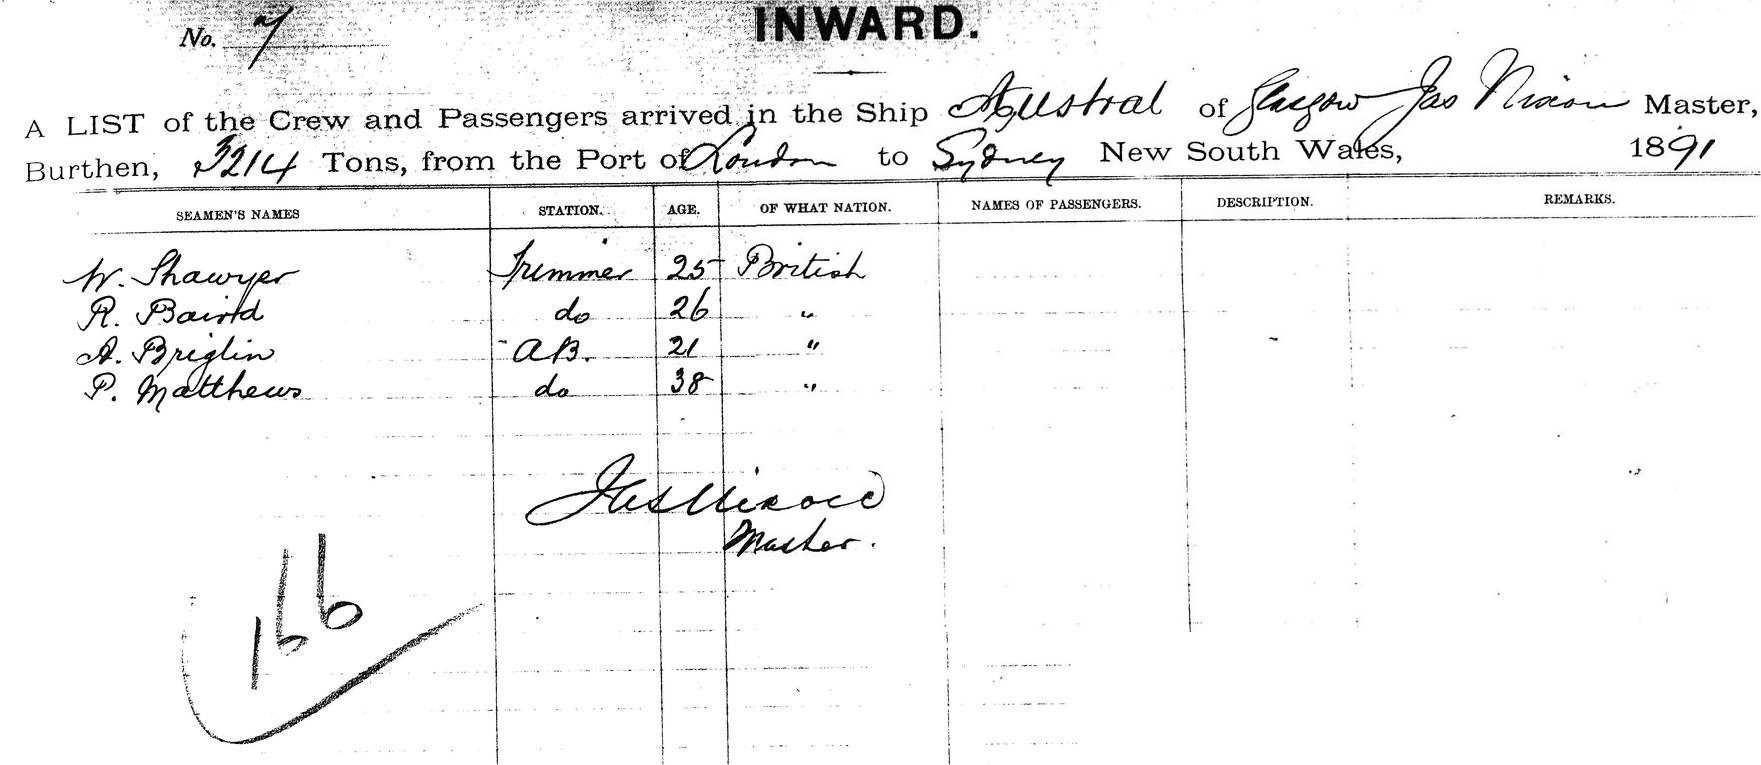 No. 7
INWARD.
A LIST of the Crew and Passengers arrived in the Ship Austral of Glasgow Jas Nixon Master,
Burthen, 3214 Tons, from the Port of London to Sydney New South Wales, 1891
SEAMEN'S NAMES STATION. AGE. OF WHAT NATION. NAMES OF PASSENGERS. DESCRIPTION. REMARKS.
W. Shawyer Trimmer 25 British
R. Baird do 26 "
A. Briglin AB. 21 "
P. Matthews do 38 "
Jas Nixon
Master.
166